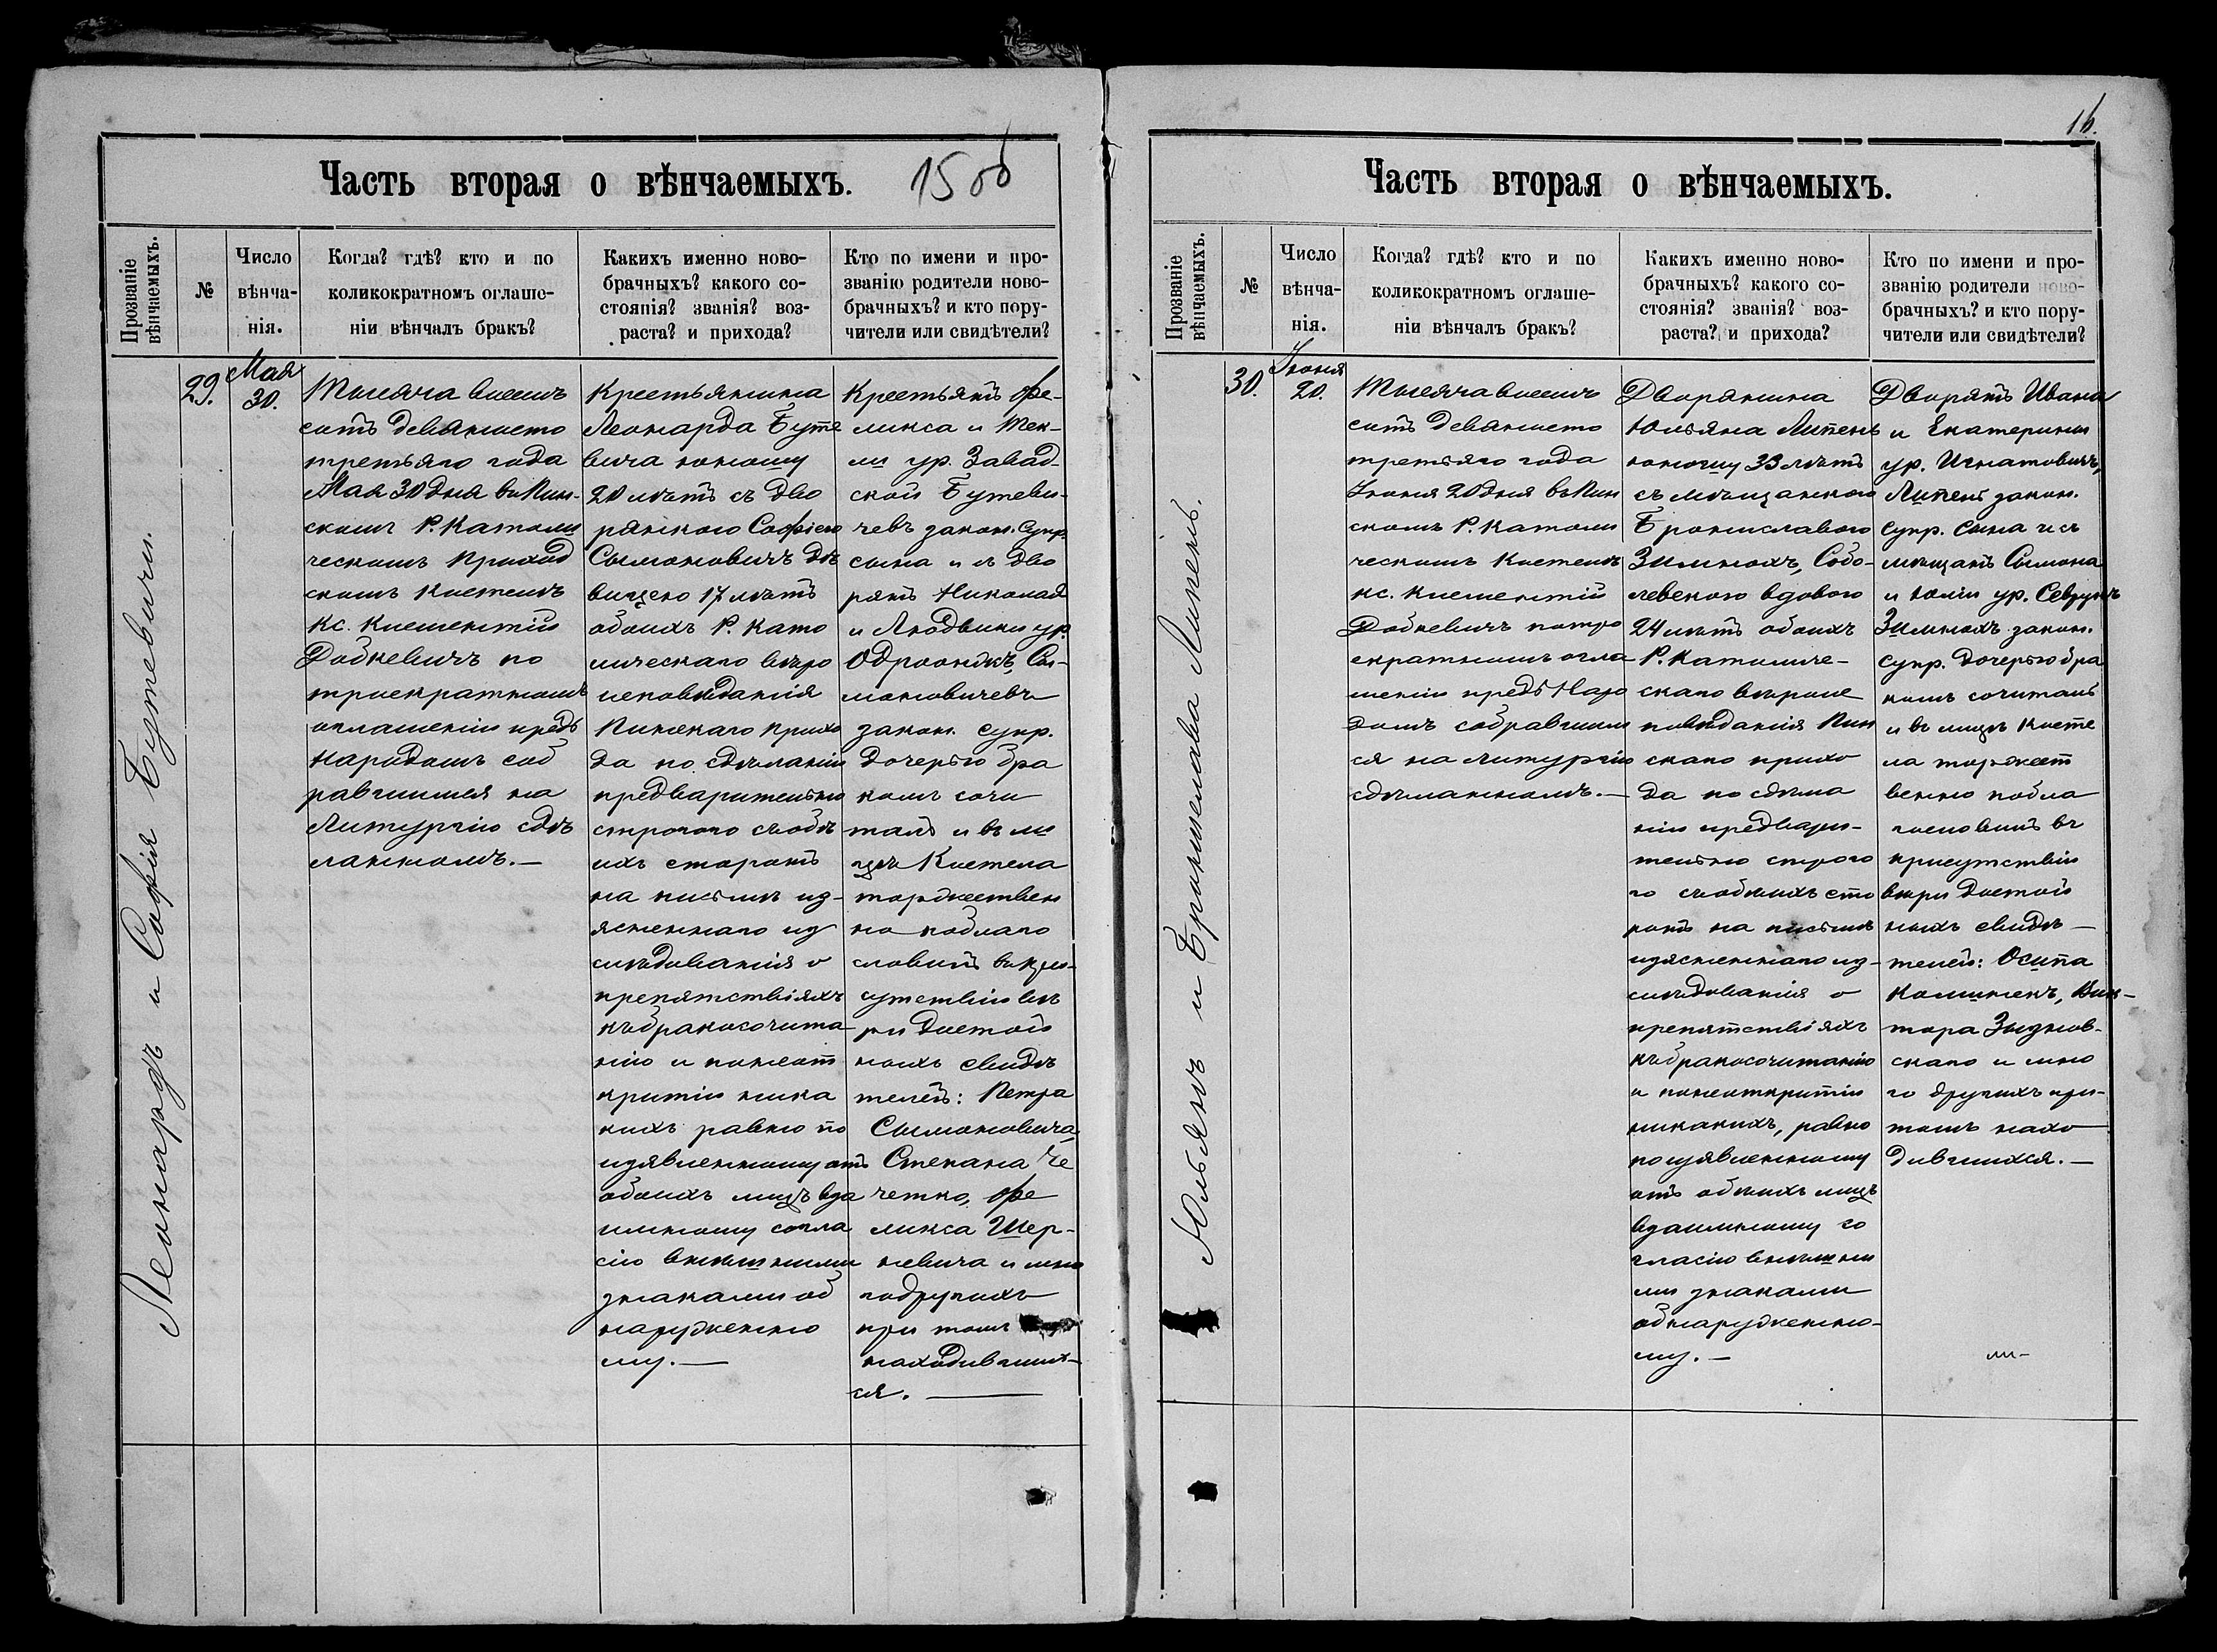 Часть вторая о вѣнчаемыхъ. 15 об
Прозваніе
вѣнчаемыхъ.
№
Число
вѣнча-
нія.
Когда? гдѣ? кто и по
коликократномъ оглаше-
ніи вѣнчалъ бракъ?
Какихъ именно ново-
брачныхъ? какого со-
стоянія? званія? воз-
раста? и прихода?
Кто по имени и про-
званію родители ново-
брачныхъ? и кто пору-
чители или свидѣтели?
Леонардъ и Софія Бутевичи.
29.
Мая
30.
Тысяча восемь
сотъ девяносто
третьяго года
Мая 30 дня въ Пин-
скомъ Р. Католи
ческомъ приход
скомъ костелѣ
Кс. Клементій
Добкевичъ по
троекратномъ
оглашеніи предъ
народомъ соб
равшимся на
Литургію сдѣ
ланномъ.—
Крестьянина
Леонарда Буте
вича юношу
20 лѣтъ съ дво
рянкою Софіею
Сымоновичъ дѣ
вицею 17 лѣтъ
обоихъ Р. Като
лическаго вѣро
исповѣданія
Пинскаго прихо
да по сдѣланіи
предварительно
строгого съ обѣ
ихъ сторонъ
на письмѣ из-
ясненнаго из
слѣдованія о
препятствіяхъ
къ бракосочита
нію и по неот
крытіи ника
кихъ равно по
изявленному отъ
обоихъ лицъ вза
имному согла
сію внѣшними
знаками об
наруженно
му.—
Крестьянъ Фе-
ликса и Тек-
ли ур. Завад-
ской Бутеви-
чевъ закон. супр.
сына и съ дво
рянъ Николая
и Людвики ур.
Сы-
моновичевъ
закон. супр.
дочерью бра
комъ соче
талъ и въ ли
цѣ Костела
торжествен
но поблаго
словилъ въ при-
сутствіи вѣ
ри достой
ныхъ свидѣ
телей: Петра
Сымоновича,
Степана Че
четко, Фе
ликса Шер-
невича и мно
го другихъ
при томъ
находивших-
ся.—
16.
Часть вторая о вѣнчаемыхъ.
Прозваніе
вѣнчаемыхъ.
№
Число
вѣнча-
нія.
Когда? гдѣ? кто и по
коликократномъ оглаше-
ніи вѣнчалъ бракъ?
Какихъ именно ново-
брачныхъ? какого со-
стоянія? званія? воз-
раста? и прихода?
Кто по имени и про-
званію родители ново-
брачныхъ? и кто пору-
чители или свидѣтели?
Юльянъ и Бронислава Липень.
30.
Іюня
20.
Тысяча восемь
сотъ девяносто
третьяго года
Іюня 20 дня въ Пин
скомъ Р. Католи
ческомъ костелѣ
кс. Клементій
Добкевичъ по тро
екратномъ огла
шеніи предъ наро
домъ собравшим
ся на литургію
сдѣланномъ.—
Дворянина
Юльяна Липень
юношу 33 лѣтъ
съ мѣщанкою
Брониславою
Зимнохъ, Собо-
левскою вдовою
24 лѣтъ обоихъ
Р. Католиче-
скаго вѣроис
повѣданія Пин
скаго прихо
да по сдѣла
ніи предвари-
тельно строго
го съ обѣихъ сто
ронъ на письмѣ
изясненнаго из-
слѣдованія о
препятствіяхъ
къ бракосочитанію
и по неоткрытіи
никакихъ, равно
по изявленному
отъ обоихъ лицъ
взаимному со
гласію внѣшни
ми знаками
обнаруженно-
му.—
Дворянъ Ивана
и Екатерины
ур. Игнатовичъ,
Липень закон.
супр. сына и съ
мѣщанъ Сымона
и Юліи ур. Севрукъ
Зимнохъ закон.
супр. дочерью бра
комъ сочиталъ
и въ лицѣ Косте
ла торжест
венно побла
гословилъ въ
присутствіи
вѣри достой
ныхъ свидѣ—
телей: Осипа
Калинекъ, Вик-
тора
скаго и мно
го другихъ при-
томъ нахо
дившихся.—